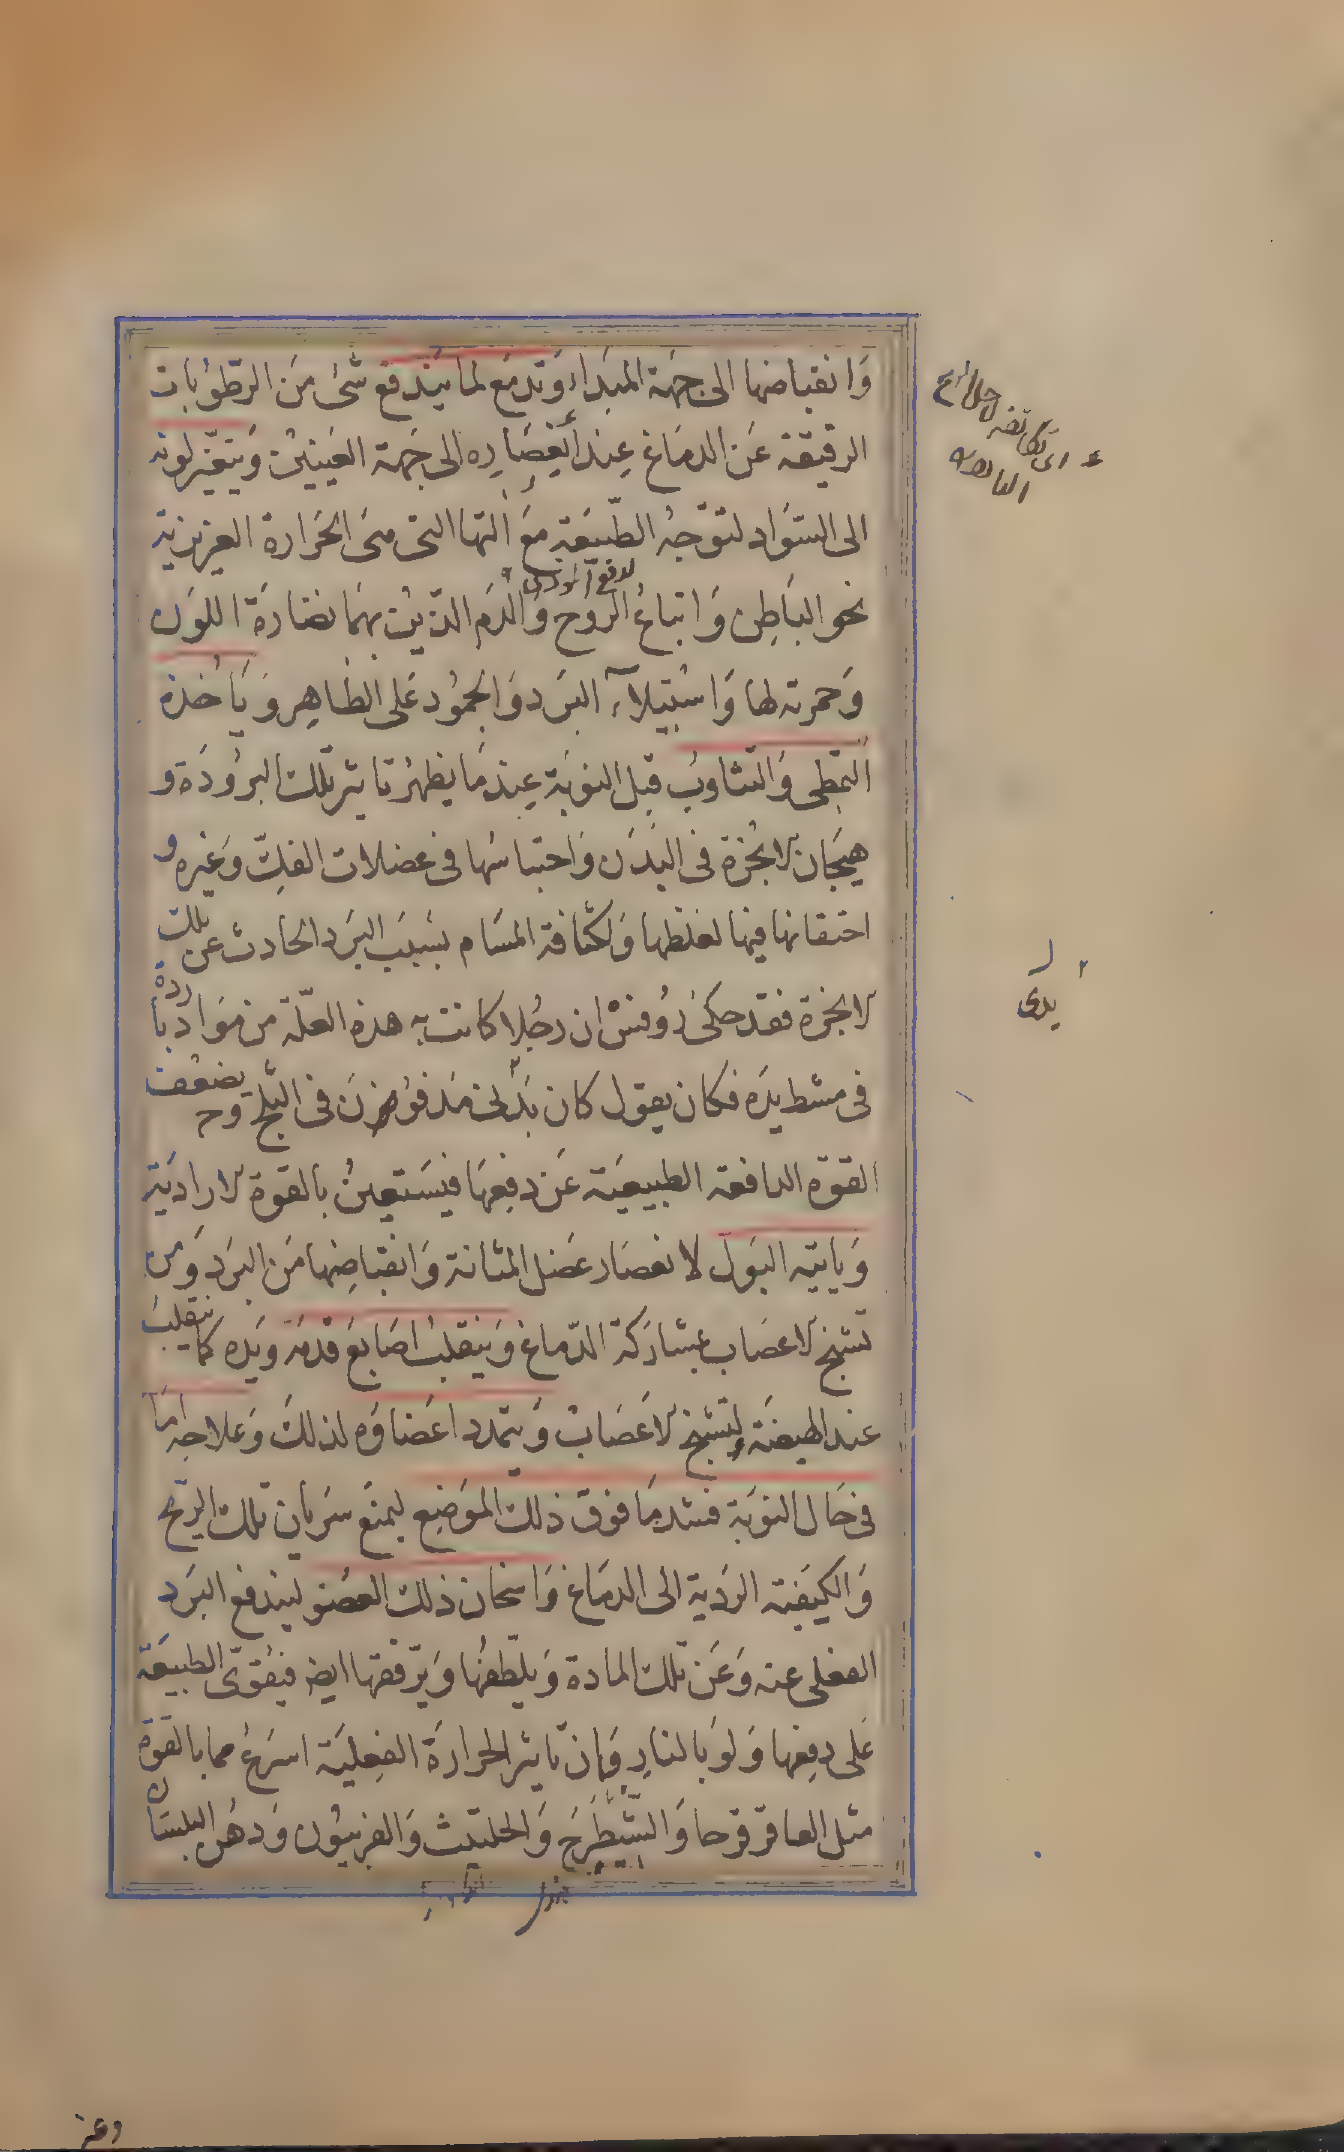 وَانقباضها الى جهة المبداء وَتدمع لما يندفع شئ من الرطوبات
الرقيقة عَن الدماغ عِند انعِصَاره الى جهة العَينين وَيتغيّر لونه
الى السَّوَاد لتوَجّه الطّبيعَة مَعَ التها التى هى الحَرارة الغريزية
لدفع الموذى
نحو البَاطِن وَاتباع الروح وَالدَم الذين بهمَا نضارة اللوَن
وَحمرته لها وَاسْتيلآء البَرد وَالجمُود عَلى الظاهِر وَيَأخذه
التمطى وَالتثاوب قبل النوبَة عِند مَا يظهر تاثير تلك البرُودَة و
هيَجَان الابخرة فى البَدَن وَاحتباسُها فى عضلات الفكّ وَغيره و
احتقانها فيها لغلظها وَلكثافة المسَام بسَبَب البَرد الحادث عن تلك
الابخرة فقد حكى رُوفسْ ان رجُلا كانت به هذه العلّة من مَوَاد باردة
فى مشط يدَه فكان يقول كان بَدَنى مَدفوُن فى الثلج وح يضعُف
القوّة الدافعة الطبيعيَة عَن دفِعهَا فيَستعِينُ بالقوة الاراديَة
وَياتيه البَول لانعصَار عَضل المثانة وَانقباضِها مَن البَرد وَمن
تشنج الاعصَاب بمشارَكة الدّماغ وَينقلبُ اصَابعَ قدمَه وَيَده كما ينقلبُ
عند الهيضَة لتشنّج الاعَصَابْ وَيتمدد اعَضاؤه لذلكَ وَعلاجه امَا
فى حَال النوَبة فشد مَا فوق ذلكَ الموَضِع ليمنَع سَريَان تلك الريح
وَالكيَفية الردَية الى الدمَاغ وَاسخان ذلك العضو ليندفع البَرد
الفعلى عنه وَعَن تلك المادة وَيلطفهُا وَيرققها ايضا فيقوَى الطبيعَة
عَلى دفعِها وَلوَ بالنار وَان تَاثير الحرارَة الفِعليَة اسرَع مما بالقوة
مثل العاقرقرحا وَالشّيطَرَج وَالحلتيث وَالفربيُون وَدهُن البلسَان
اى تكاثفه لاجل
٢ يدى